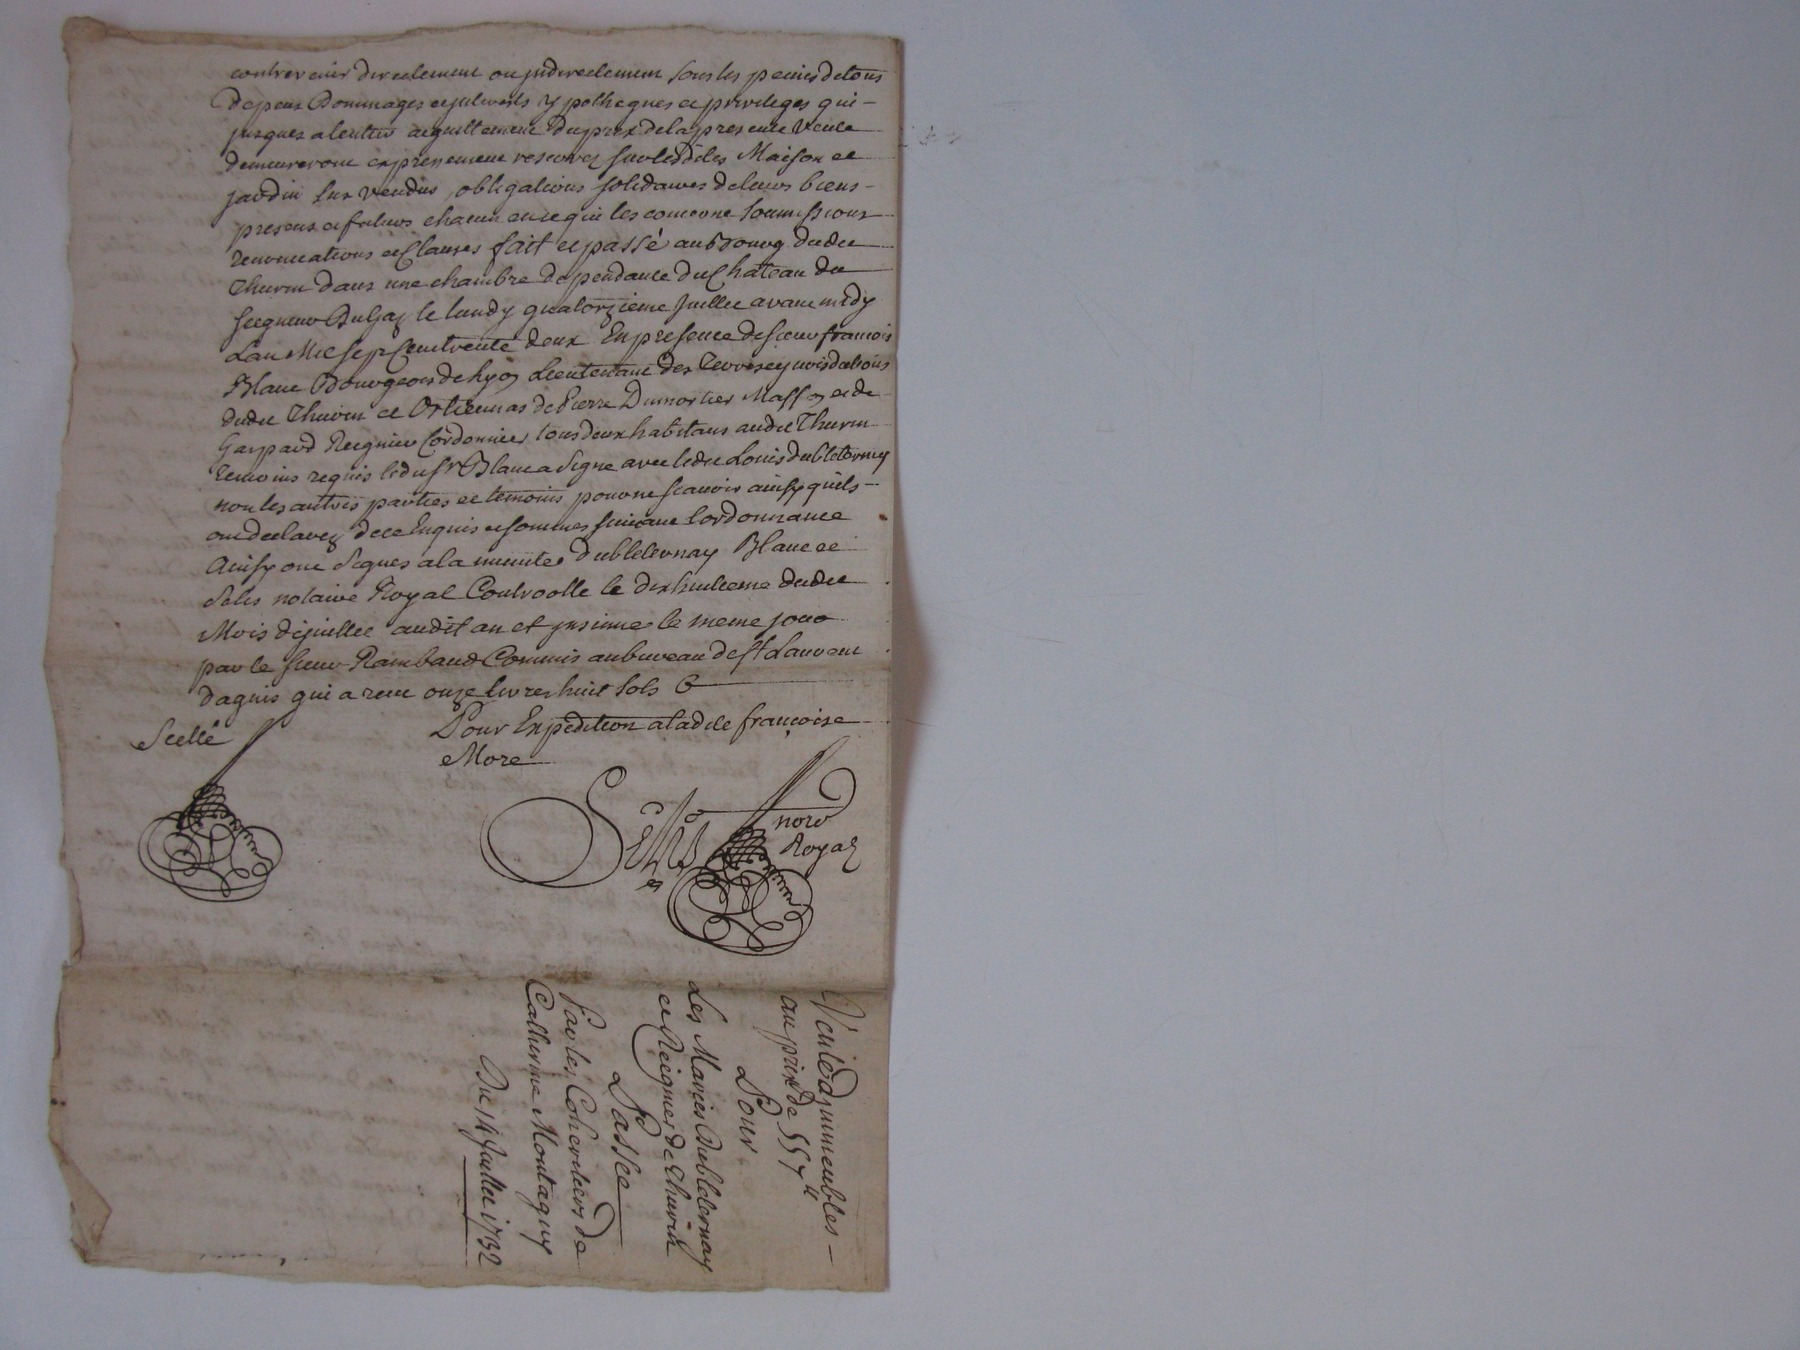 contrevenir directement ou indirectement sous les peines de tous
depens Dommages et jnterests ypotheques et privileges qui
jusques a lentier acquittement du prix de la presente vente
demeureront expressement reservez sur lesdites Maison et
jardin sus vendus, obligations solidaires de leurs biens
presens et futurs chacun en ce qui les concerne soumissions
renonciations et Clauses fait et passé au Bourg dudit
Thurin dans une chambre dependante du Chateau du
seigneur Du Gaz le lundy quatorzieme juillet avant midy
L'an Mil sept Cent trente deux En presence de sieur francois
Blanc Bourgeois de Lyon Lieutenant des
dudit Thurin et de Pierre Dumortier Masson et de
Gaspard Reignier Cordonnier tous deux habitans audit Thurin
temoins requis ledit sr Blanc a signé avec ledit Louis dubleternay
non les autres parties et temoins pour ne scavoir ainsy quils
ont declarez de ce Enquis et sommes suivant lordonnance
Ainsy ont signes a la minute dubleternay Blanc et
Selis notaire Royal Controolle le dix huitieme dudit
Mois de juillet audit an et jnsinue le meme jour
par le sieur Rambaud Commis au bureau de St Laurent
dagnis qui a receu onze livres huit sols
Scellé
Pour Expedition a ladite francoise
More
Selis
nore
Royal
Vente d'jmmeubles
au prix de 557 ll
Pour
Les Mariés Dubleternay
et Reignier de Thurin
Passee
Par les Coheritiers de
Catherine Montagny
Du 14 Juillet 1732